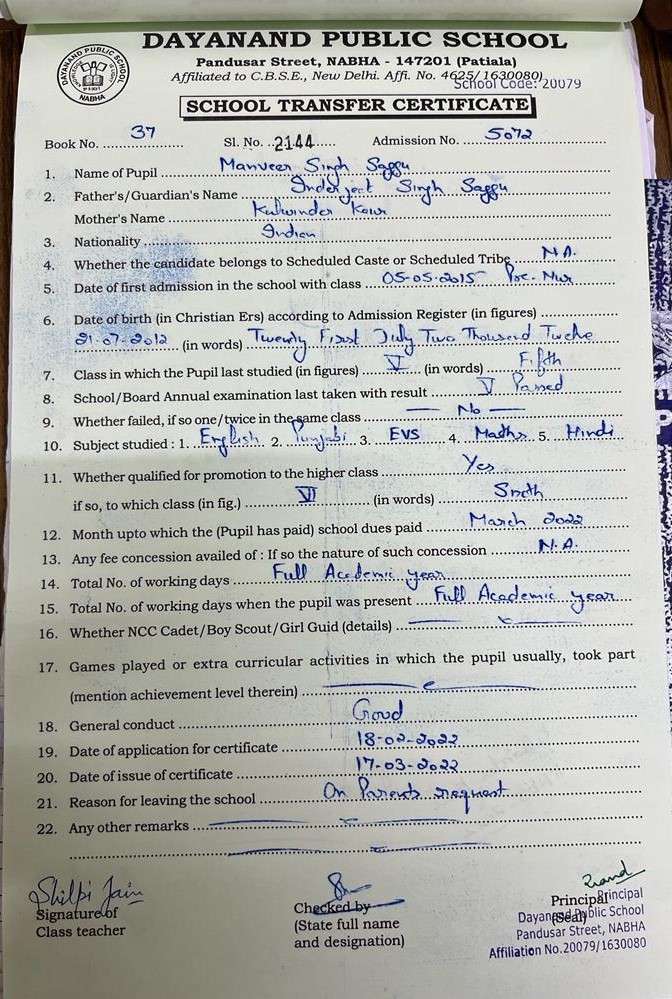 DAYANAND PUBLIC SCHOOL
Pandusar Street, NABHA - 147201 (Patiala)
Affiliated to C.B.S.E., New Delhi. Affi. No. 4625/1630080)
School Code: 20079
DAYANAND PUBLIC SCHOOL
NABHA
SCHOOL TRANSFER CERTIFICATE
Book No. 37 Sl. No. 2144 Admission No. 5072
1. Name of Pupil Manveer Singh Saggu
2. Father's/Guardian's Name Inderjeet Singh Saggu
Mother's Name Kulwinder Kaur
3. Nationality Indian
4. Whether the candidate belongs to Scheduled Caste or Scheduled Tribe N.A.
5. Date of first admission in the school with class 05-05-2015 Pre. Nur
6. Date of birth (in Christian Ers) according to Admission Register (in figures)
21-07-2012 (in words) Twenty First July Two Thousand Twelve
7. Class in which the Pupil last studied (in figures) V (in words) Fifth
8. School/Board Annual examination last taken with result V Passed
9. Whether failed, if so one/twice in the same class — No —
10. Subject studied : 1. English 2. Punjabi 3. EVS 4. Maths 5. Hindi
11. Whether qualified for promotion to the higher class Yes
if so, to which class (in fig.) VI (in words) Sixth
12. Month upto which the (Pupil has paid) school dues paid March 2022
13. Any fee concession availed of : If so the nature of such concession N.A.
14. Total No. of working days Full Academic year
15. Total No. of working days when the pupil was present Full Academic year
16. Whether NCC Cadet/Boy Scout/Girl Guid (details)
17. Games played or extra curricular activities in which the pupil usually, took part
(mention achievement level therein)
18. General conduct Good
19. Date of application for certificate 18-02-2022
20. Date of issue of certificate 17-03-2022
21. Reason for leaving the school On Parents request
22. Any other remarks
Shilpi Jain
Signature of
Class teacher
Checked by
(State full name
and designation)
Principal
(Seal)
Principal
Dayanand Public School
Pandusar Street, NABHA
Affiliation No.20079/1630080